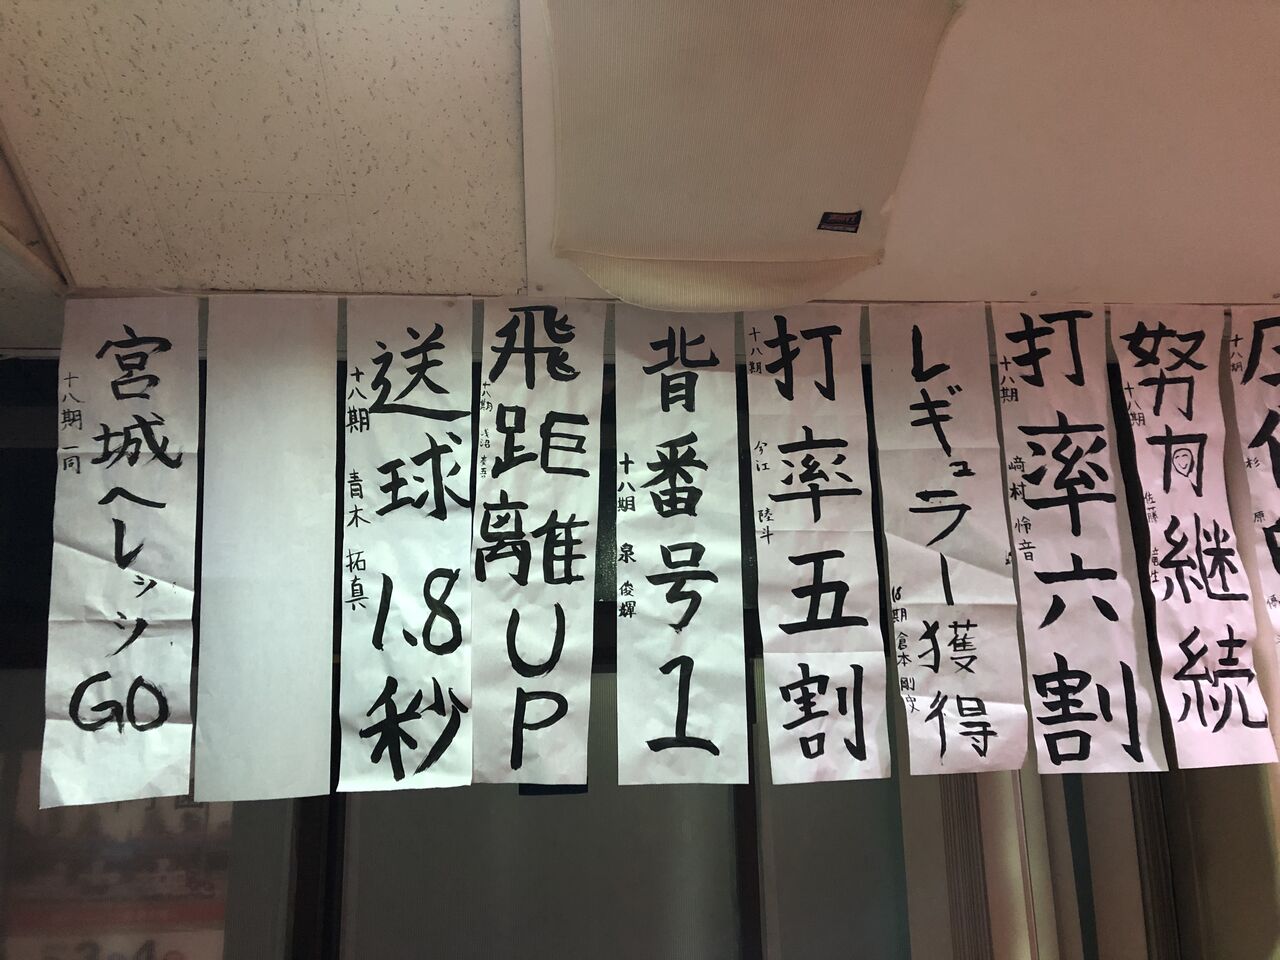 努力継続
十八期
佐藤 竜生
打率六割
十八期
﨑村 怜音
レギュラー獲得
18期 倉本 剛史
打率五割
十八期
今江 陸斗
背番号1
十八期 泉 俊輝
飛距離UP
十八期
送球1.8秒
十八期 青木 拓真
宮城ヘレッツGO
十八期一同